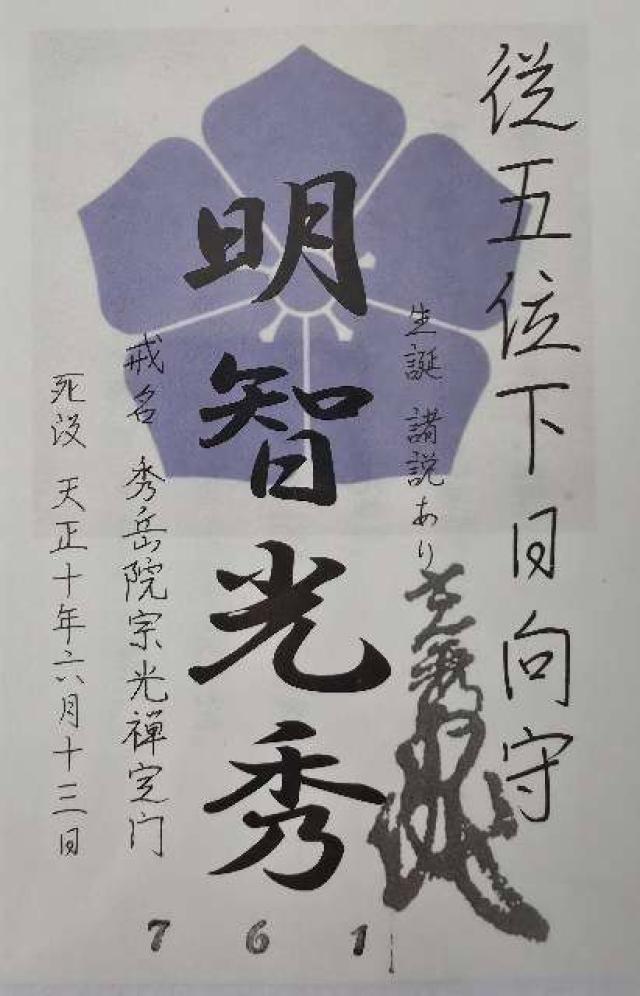 従五位下日向守
生誕 諸説あり
明智光秀
戒名 秀岳院宗光禅定門
死没 天正十年六月十三日
7 6 1